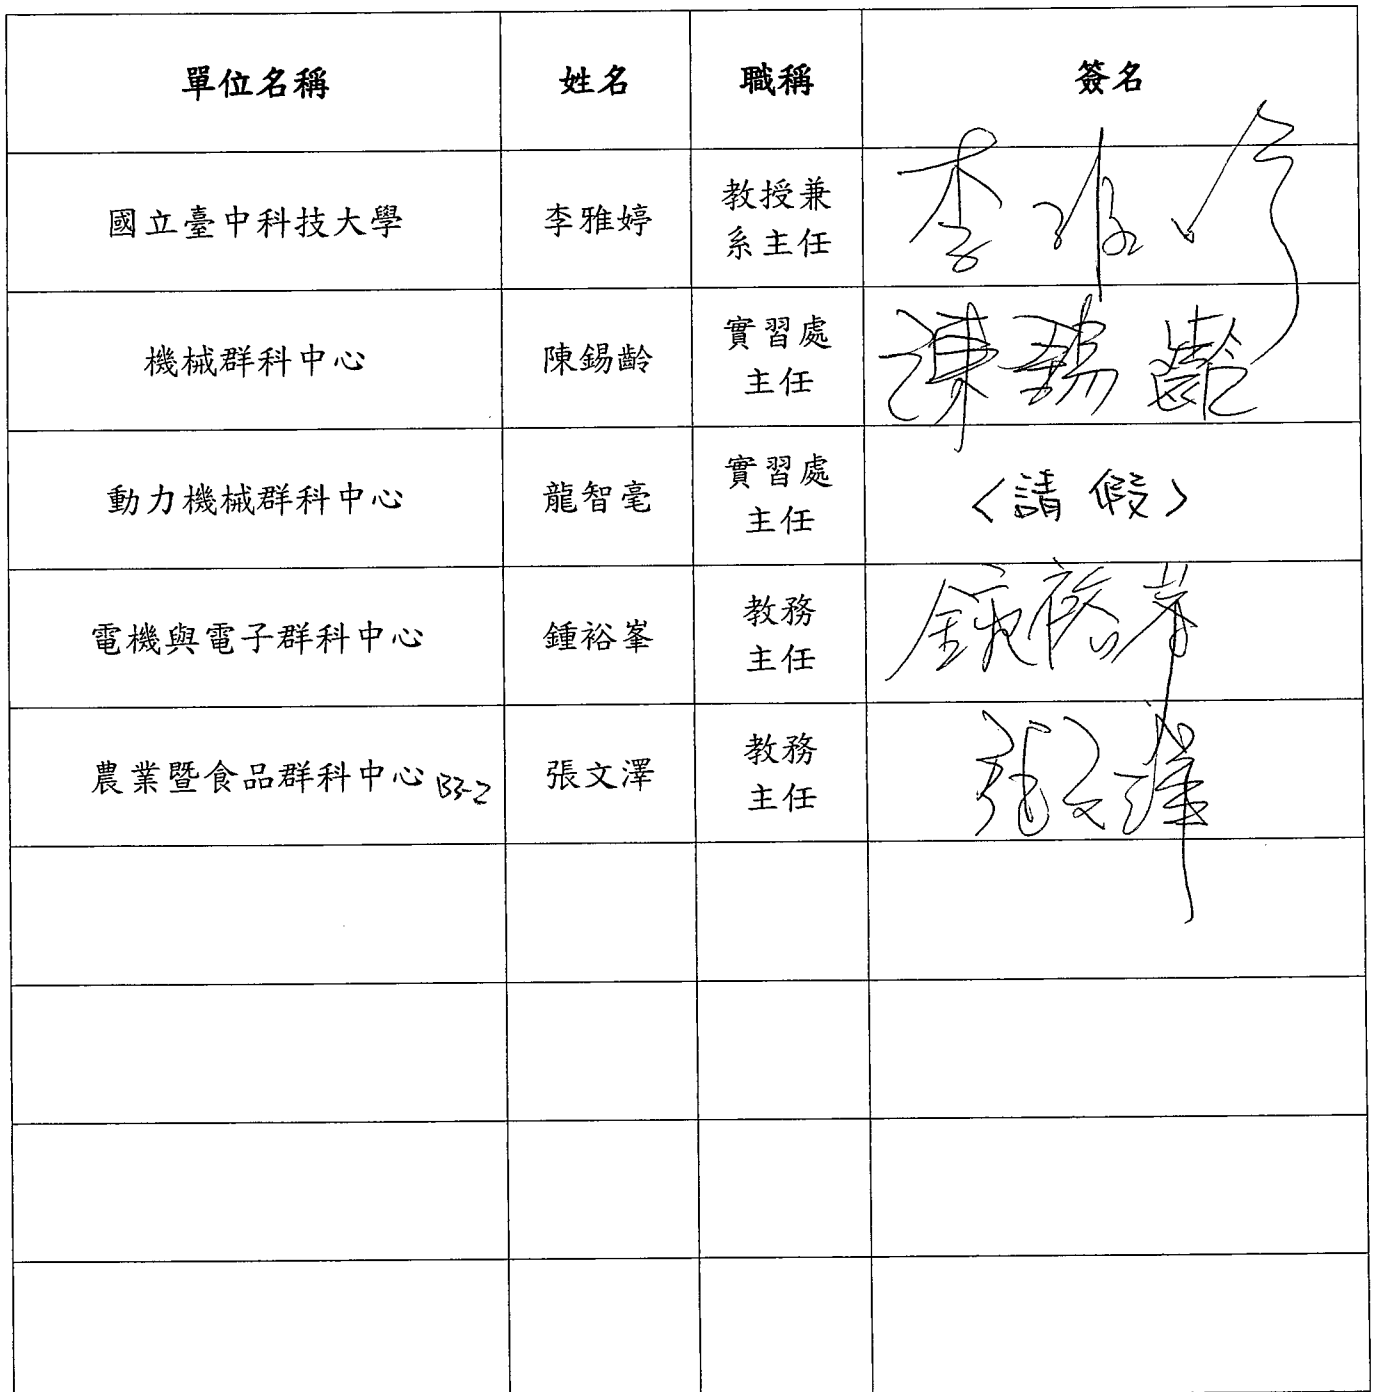 單位名稱 姓名 職稱 簽名
國立臺中科技大學 李雅婷 教授兼
系主任 李雅婷
機械群科中心 陳錫齡 實習處
主任 陳錫齡
動力機械群科中心 龍智毫 實習處
主任 〈請假〉
電機與電子群科中心 鍾裕峯 教務
主任 鍾裕峯
農業暨食品群科中心 B3-2 張文澤 教務
主任 張文澤